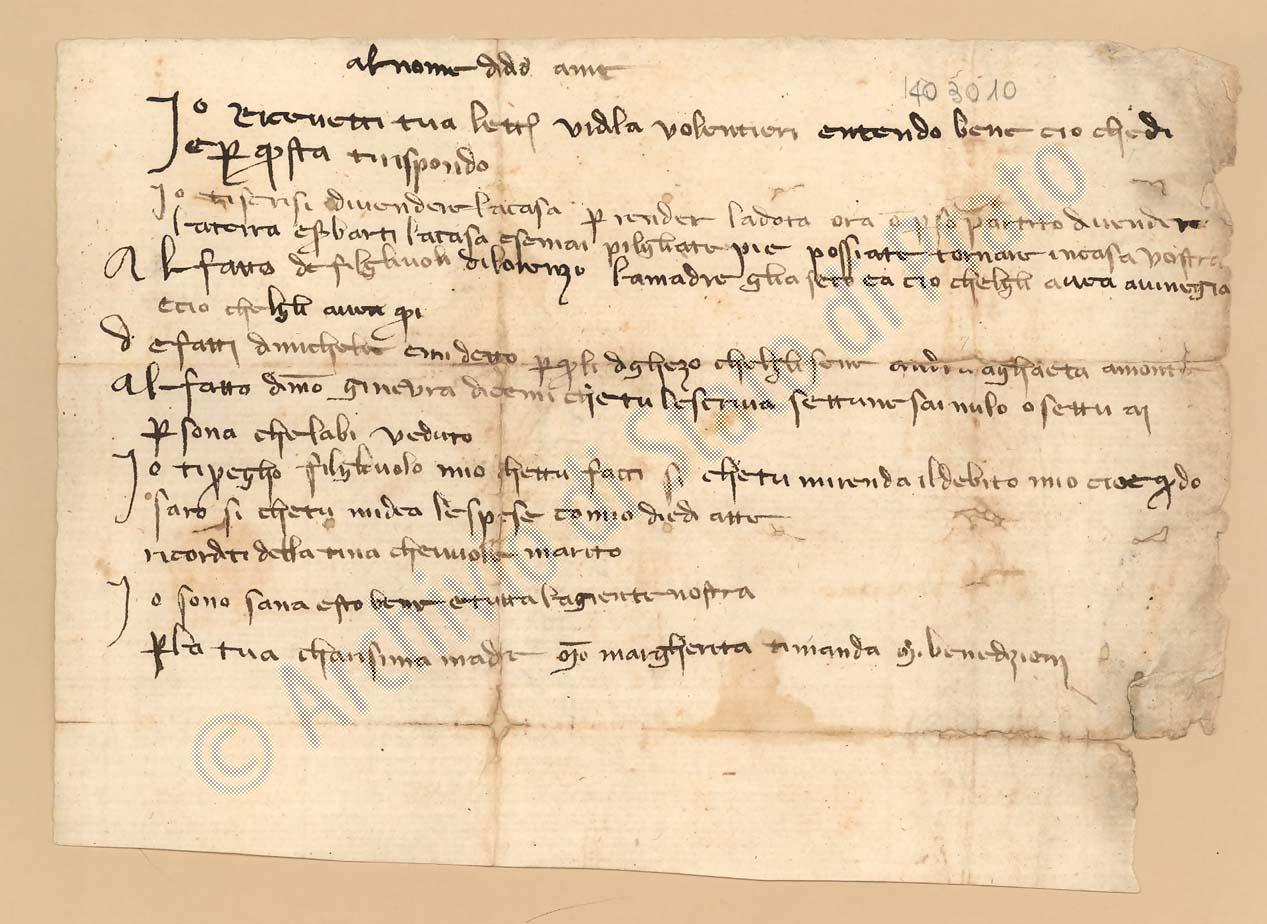 al nome didio ame
1403010
Io ricevetti tua lett vidila volentieri entendo bene cio che di
e p qsta ti rispondo
Io ti scrisi di vendere la casa p render la dota ora o pso partito di vendere
la terra e sbarti la casa e semai pilgliate pie possiate tornare in casa vostra
Al fatto de filgliuoli di lorenzo la madre gli a seco ea cio chelgli avea a vinegia
e cio chelgli avea qi
de fatti di michele emi detto p qli dghezo chelgli sene a ghaeta
Al fatto di mo ginevra dicemi che tu le scriva settune sai nulo o settu ai
psona che labi veduto
Io ti pregho filgliuolo mio chettu facci si che tu mi renda il debito mio cioe qdo
saro si che tu mi dea le spese comio diedi atte
ricorditi della tina che vuole marito
Io sono sana e sto bene e tutta la giente nostra
P la tua charisima madre mo margherita ti manda m benedizieni
© Archivio di Stato di Prato